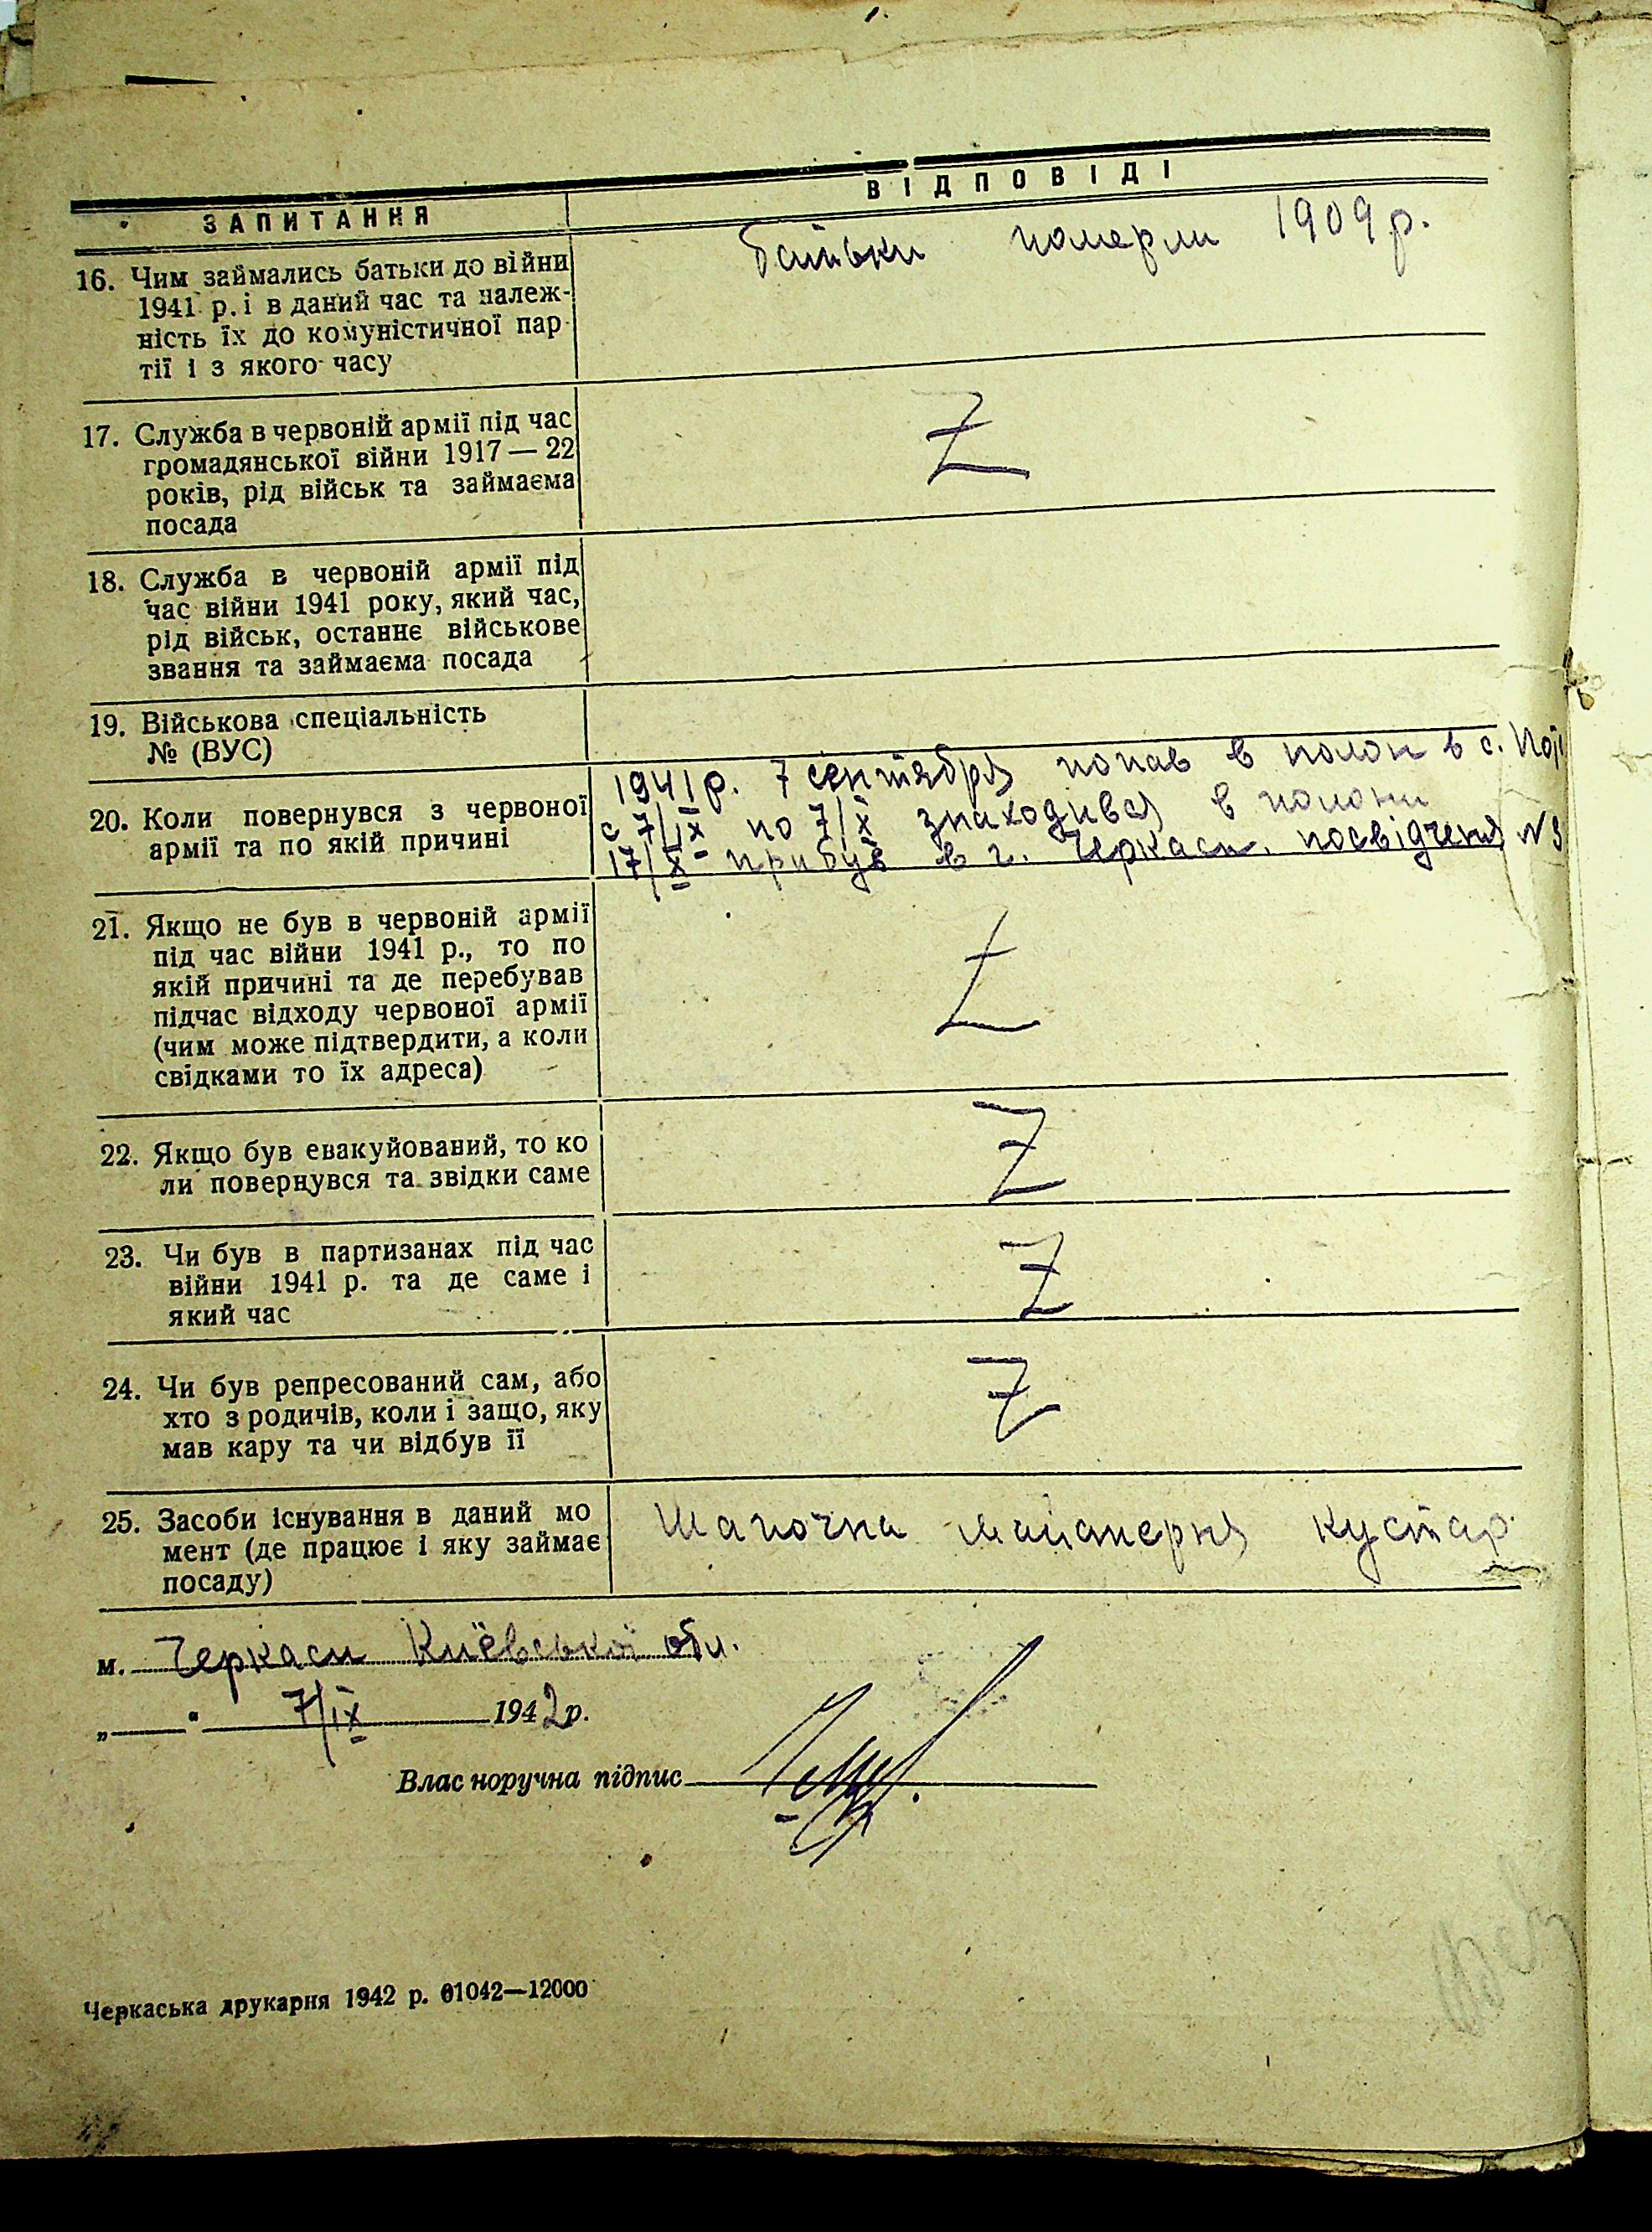 ЗАПИТАННЯ
ВІДПОВІДІ
16. Чим займались батьки до війни
1941 р. і в даний час та належ-
ність їх до комуністичної пар-
тії і з якого часу
батьки померли 1909 р.
17. Служба в червоній армії під час
громадянської війни 1917 — 22
років, рід військ та займаєма
посада
Z
18. Служба в червоній армії під
час війни 1941 року, який час,
рід військ, останнє військове
звання та займаєма посада
19. Військова спеціальність
№ (ВУС)
20. Коли повернувся з червоної
армії та по якій причині
1941 р. 7 сентября попав в полон в с.
с 7/IX по 7/X знаходився в полони
17/X прибув в г. Черкаси. посвідченя N
21. Якщо не був в червоній армії
під час війни 1941 р., то по
якій причині та де перебував
підчас відходу червоної армії
(чим може підтвердити, а коли
свідками то їх адреса)
Z
22. Якщо був евакуйований, то ко
ли повернувся та звідки саме
Z
23. Чи був в партизанах під час
війни 1941 р. та де саме і
який час
Z
24. Чи був репресований сам, або
хто з родичів, коли і защо, яку
мав кару та чи відбув її
Z
25. Засоби існування в даний мо
мент (де працює і яку займає
посаду)
Шапочна майстерня кустар
м. Черкаси Київської обл.
„ “ 7/IX 1942 р.
Власноручна підпис
Черкаська друкарня 1942 р. 01042—12000